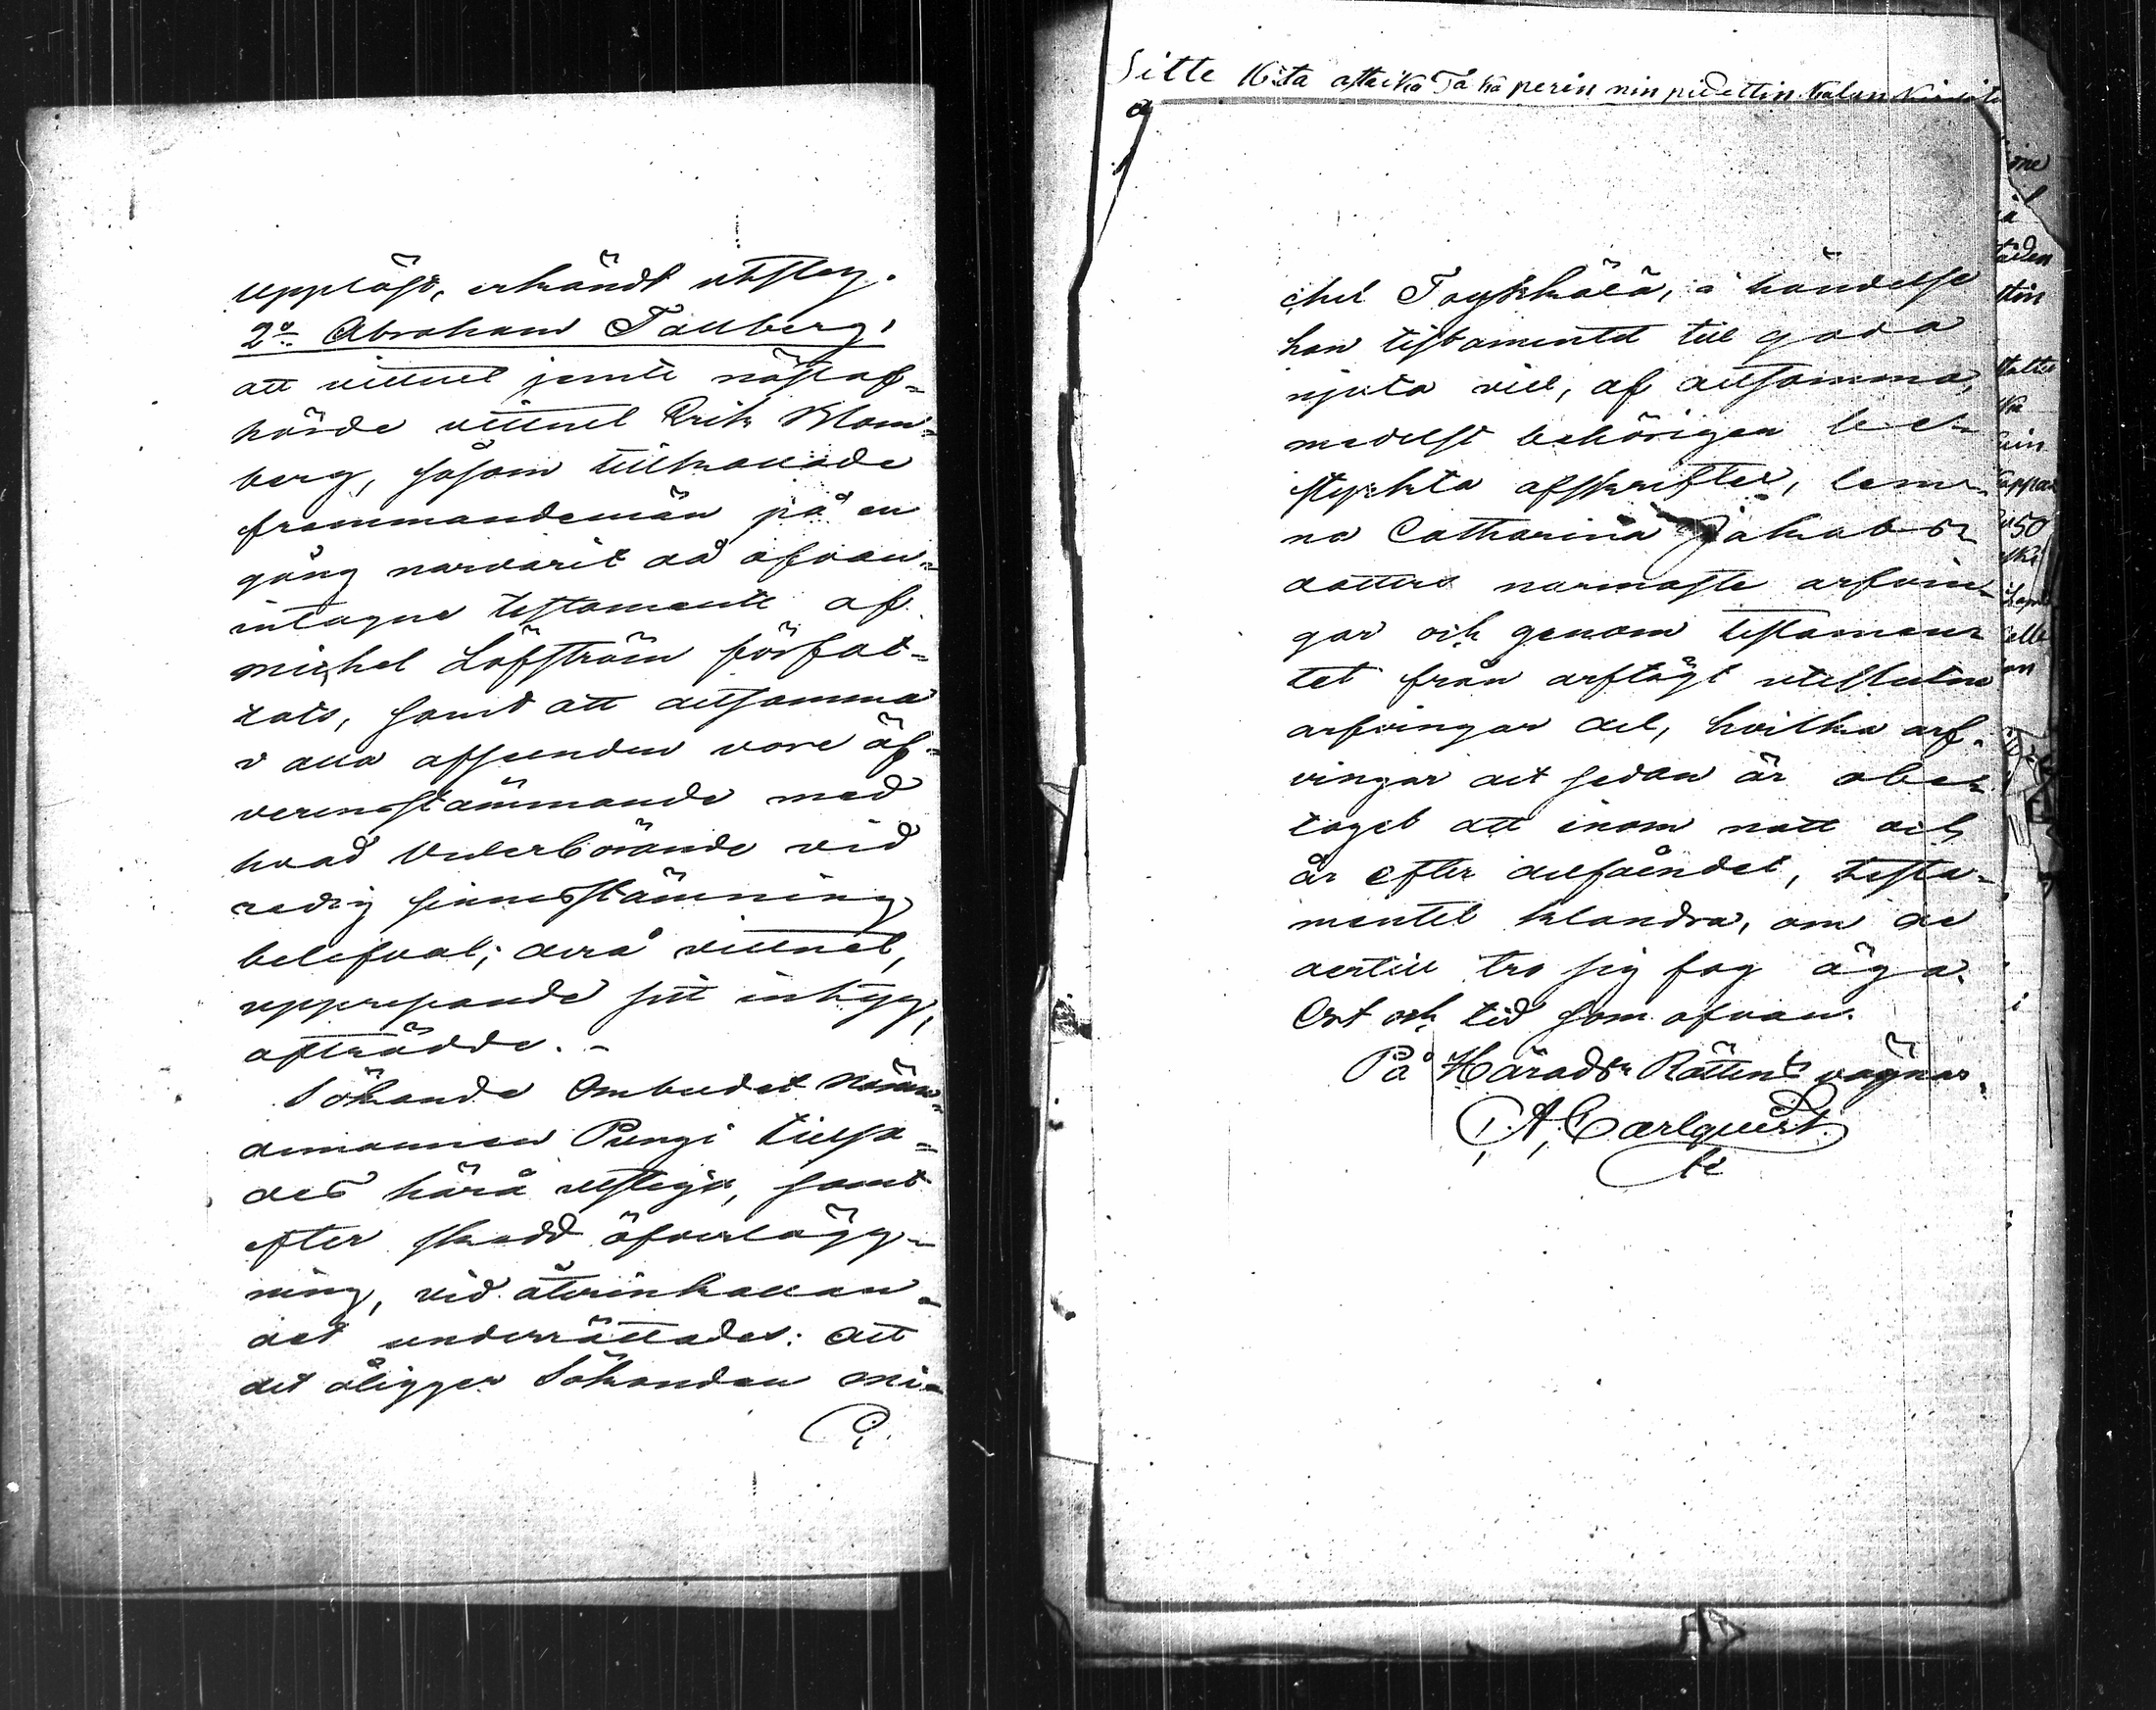 uppläst, erkändt utsteg.
2o Abraham Tallberg,
att vittnet jemte näst af=
hörde vittnet Erik Blom=
berg, såsom tillkallade
frammandemän på en
gång narvarit då ofvan=
intagne testamente af
Michel Löfström förfat=
tats, samt att detsamma
i alla afseenden vore öf=
verensstämmande med
hvad Vederbörande vid
redig sinnesstämning
belefvat; derå vittnet,
upprepande sitt intyg,
afträdde. -
Sökande Ombudet Näm=
demannen Pungi tillsa=
des härå utstiga, samt
efter skedd öfverlägg=
ning, vid återinkallan=
det underrättades: att
det åligger Sökanden Mi=
chel Toykkälä, i händelse
han testamentet till godo
njuta vill, af detsamma,
medelst behörigen be=
styrkta afskrifter, lem=
na Catharina Jakobs=
dotters narmaste arfvin=
gar och genom testamen=
tet från arftägt uteslutne
arfvingar del, hvilka arf=
vingar det sedan är obe=
taget att inom natt och
år efter delfåendet, testa=
mentet klandra, om de
dertill tro sig fog äga.
Ort och tid som ofvan.
På Härads Rättens vägnar,
A. Carlqvist
Sitte Kita
perin nin pidettin kalun